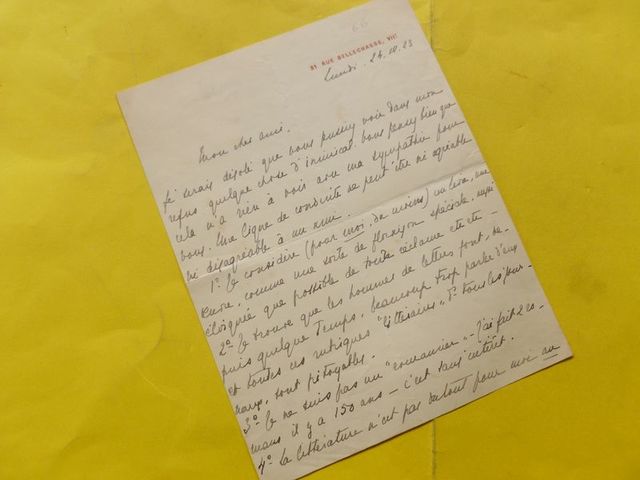 51 RUE BELLECHASSE, VIIe
Lundi. 24.
Mon cher ami.
Je serais désolé que vous puissiez voir dans mon
refus quelque chose d'inamical. Vous pensez bien que
cela n'a rien à voir avec ma sympathie pour
vous. Une ligne de conduite ne peut être ni agréable
ni désagréable à un ami.
1º Je considère (pour moi, du moins) un livre, une
œuvre, comme une sorte de floraison spéciale, aussi
éloignée que possible de toute réclame etc etc -
2º Je trouve que les hommes de lettres font, de-
puis quelque temps, beaucoup trop parler d'eux
et toutes ces rubriques "littéraires" ds tous les jour-
naux, sont pitoyables.
3º Je ne suis pas un "romancier" - J'ai fait 2 ro-
mans il y a 150 ans - c'est sans intérêt.
4º La littérature n'est pas surtout pour moi au